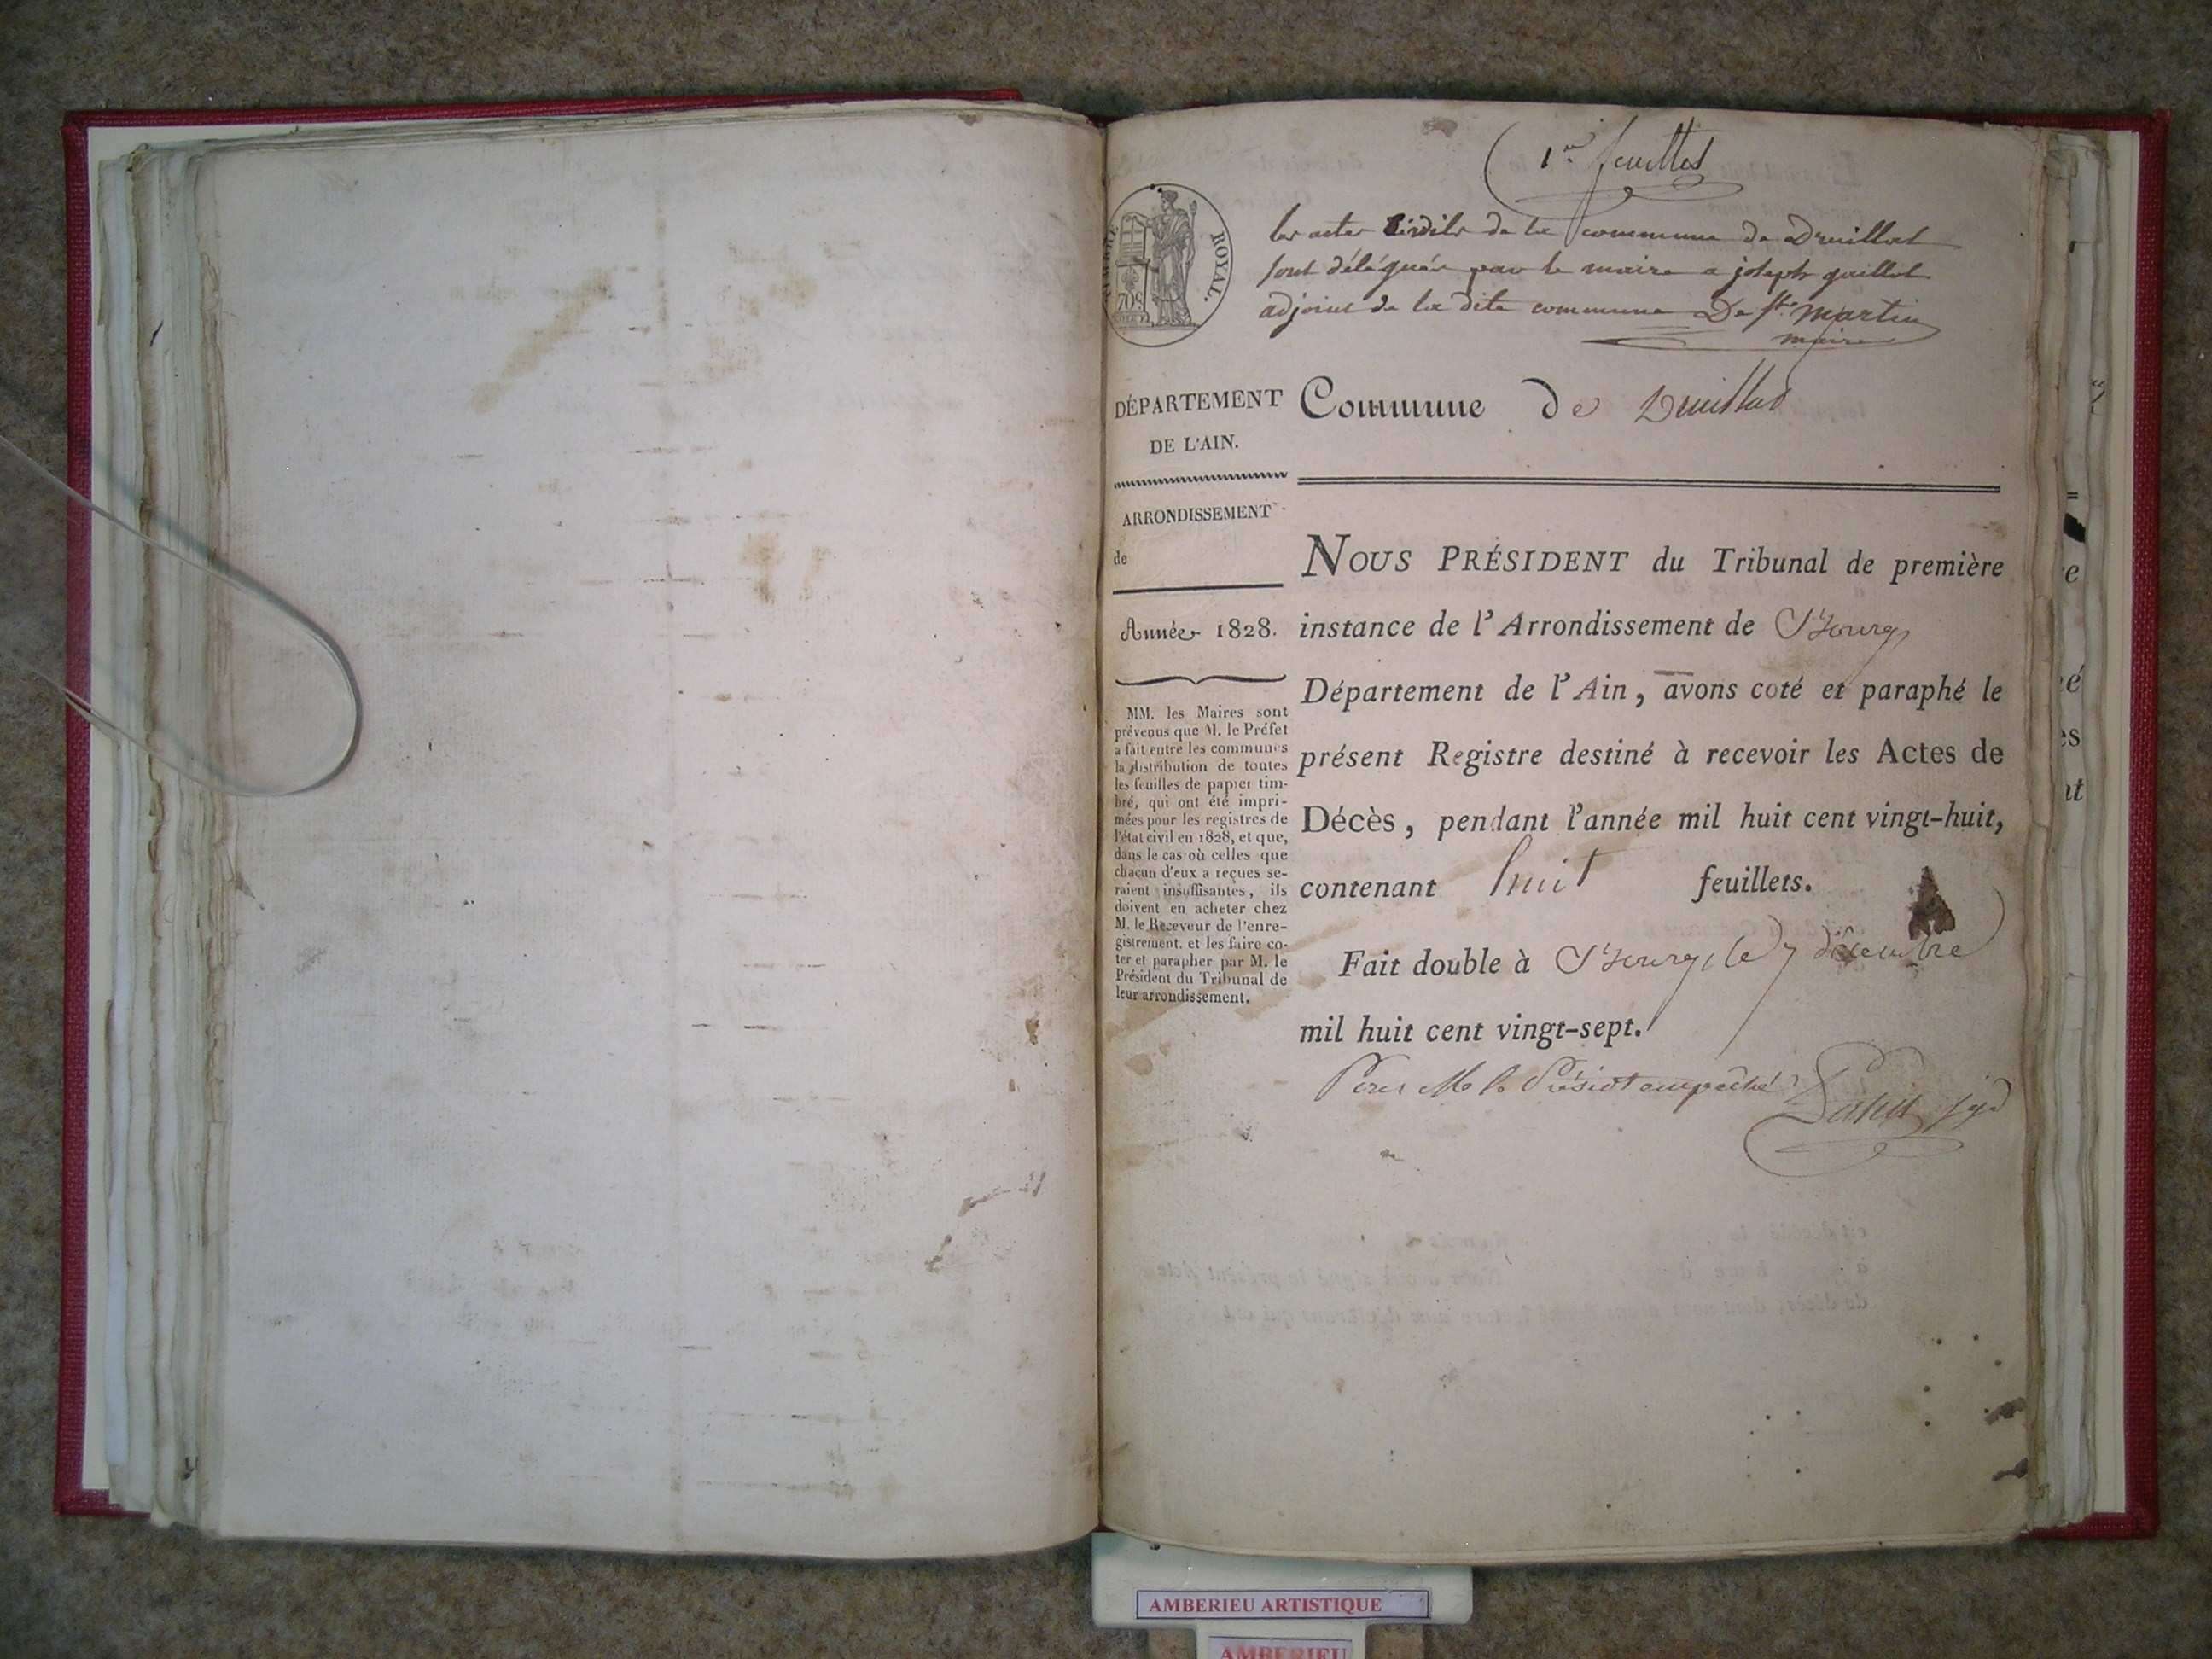 1er feuillet
les actes civils de la commune de Druillat
sont délégués par le maire a joseph guillot
adjoint de la dite commune De St. Martin
maire
TIMBRE ROYAL.
70c
DÉPARTEMENT
DE L'AIN.
Commune de Druillat
ARRONDISSEMENT
de
Année 1828.
MM. les Maires sont
prévenus que M. le Préfet
a fait entre les communes
la distribution de toutes
les feuilles de papier tim-
bré, qui ont été impri-
mées pour les registres de
l'état civil en 1828, et que,
dans le cas où celles que
chacun d'eux a reçues se-
raient insuffisantes, ils
doivent en acheter chez
M. le Receveur de l'enre-
gistrement, et les faire co-
ter et parapher par M. le
Président du Tribunal de
leur arrondissement.
NOUS PRÉSIDENT du Tribunal de première
instance de l'Arrondissement de Bourg
Département de l'Ain, avons coté et paraphé le
présent Registre destiné à recevoir les Actes de
Décès, pendant l'année mil huit cent vingt-huit,
contenant huit feuillets.
Fait double à Bourg, le 7 décembre
mil huit cent vingt-sept.
Pour M. le Présidt empêché
AMBERIEU ARTISTIQUE
AMBERIEU